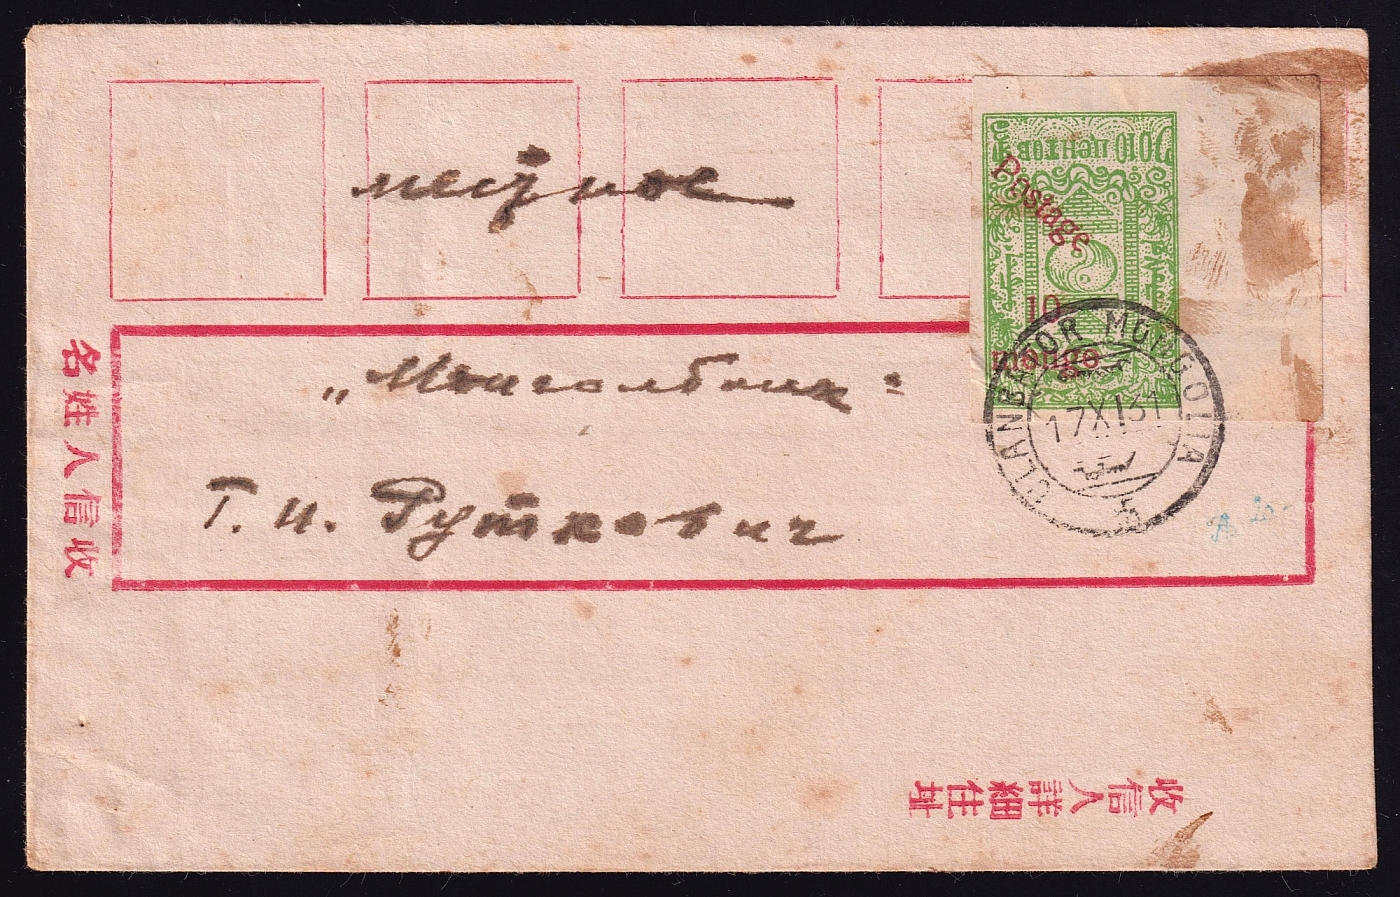 местное
„Монголбанк"
Г. И. Руткевич
10 ЦЕНТОВ
Postage
10
mongo
ULANBATOR MONGOLIA
17 XI 31
収信人姓名
收信人詳細住址